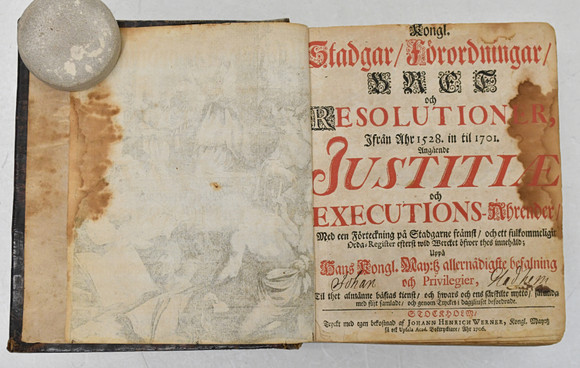 Kongl.
Stadgar/ Förordningar/
BREF
och
RESOLUTIONER,
Ifrån Åhr 1528. in til 1701.
Angående
JUSTITIÆ
och
EXECUTIONS-Ährender/
Med een Förteckning på Stadgarne främst/ och ett fulkommeligit
Orda-Register efterst wid Wercket öfwer thes innehåld;
Uppå
Hans Kongl. May:tz allernådigste befalning
och Privilegier,
Johan
Til thet almänne bästas tienst/ och hwars och ens särskilte nytto/
med flijt samlade/ och genom Trycket/ befordrade.
STOCKHOLM/
Tryckt med egen bekostnad af JOHANN HENRICH WERNER, Kongl. May:tz
Upsala Acad. Boktryckiare/ Åhr 1706.